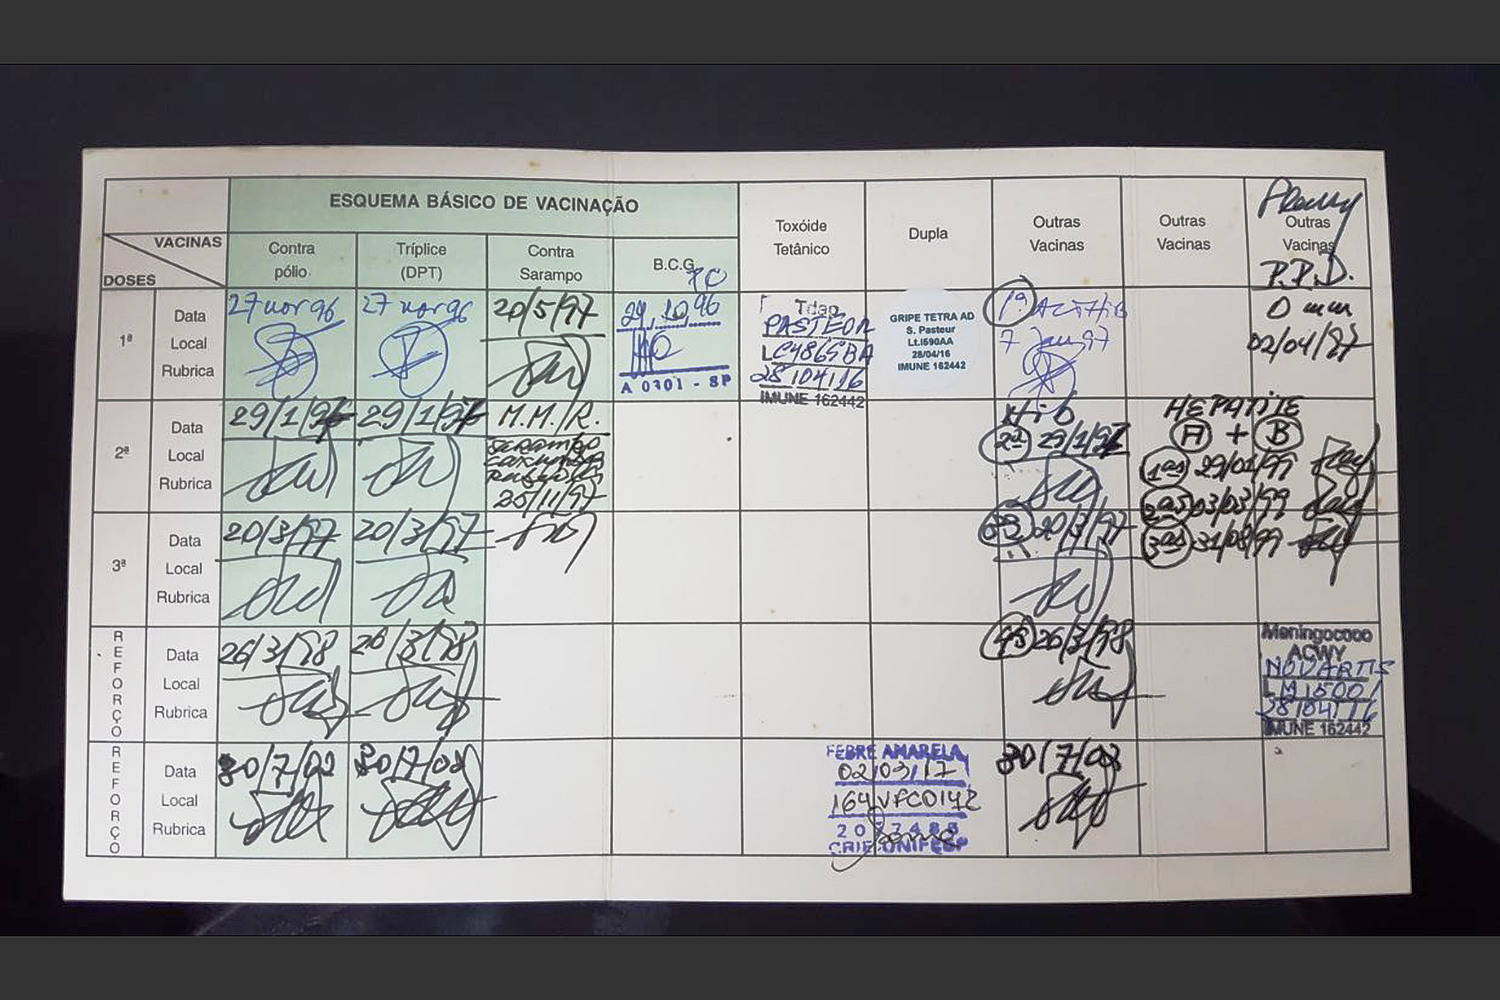 ESQUEMA BÁSICO DE VACINAÇÃO
VACINAS
DOSES
Contra pólio
Tríplice (DPT)
Contra Sarampo
B.C.G.
Toxóide Tetânico
Dupla
Outras Vacinas
Outras Vacinas
Outras Vacinas
P.P.D.
1ª
Data
Local
Rubrica
27 nov 96
27 nov 96
20/5/97
29,10,96
A 0301 - SP
Tdap
PASTEUR
28/04/16
IMUNE 162442
GRIPE TETRA AD
S. Pasteur
Lt.I590AA
28/04/16
IMUNE 162442
1ª ActHib
7 Jan 97
0 mm
02/04/97
2ª
Data
Local
Rubrica
29/1/97
29/1/97
M.M./R.
Sarampo
Caxumba
Rubéola
25/11/97
Hib
2ª 29/1/97
HEPATITE
A + B
1as 29/01/99
2as 03/03/99
3as 31/08/99
3ª
Data
Local
Rubrica
20/3/97
20/3/97
3ª 20/3/97
REFORÇO
Data
Local
Rubrica
26/3/98
26/3/98
4ª 26/3/98
Meningococo
ACWY
NOVARTIS
28/04/16
IMUNE 162442
REFORÇO
Data
Local
Rubrica
30/7/02
30/7/02
FEBRE AMARELA
02/03/17
164VFC014Z
CRIE UNIFESP
30/7/02